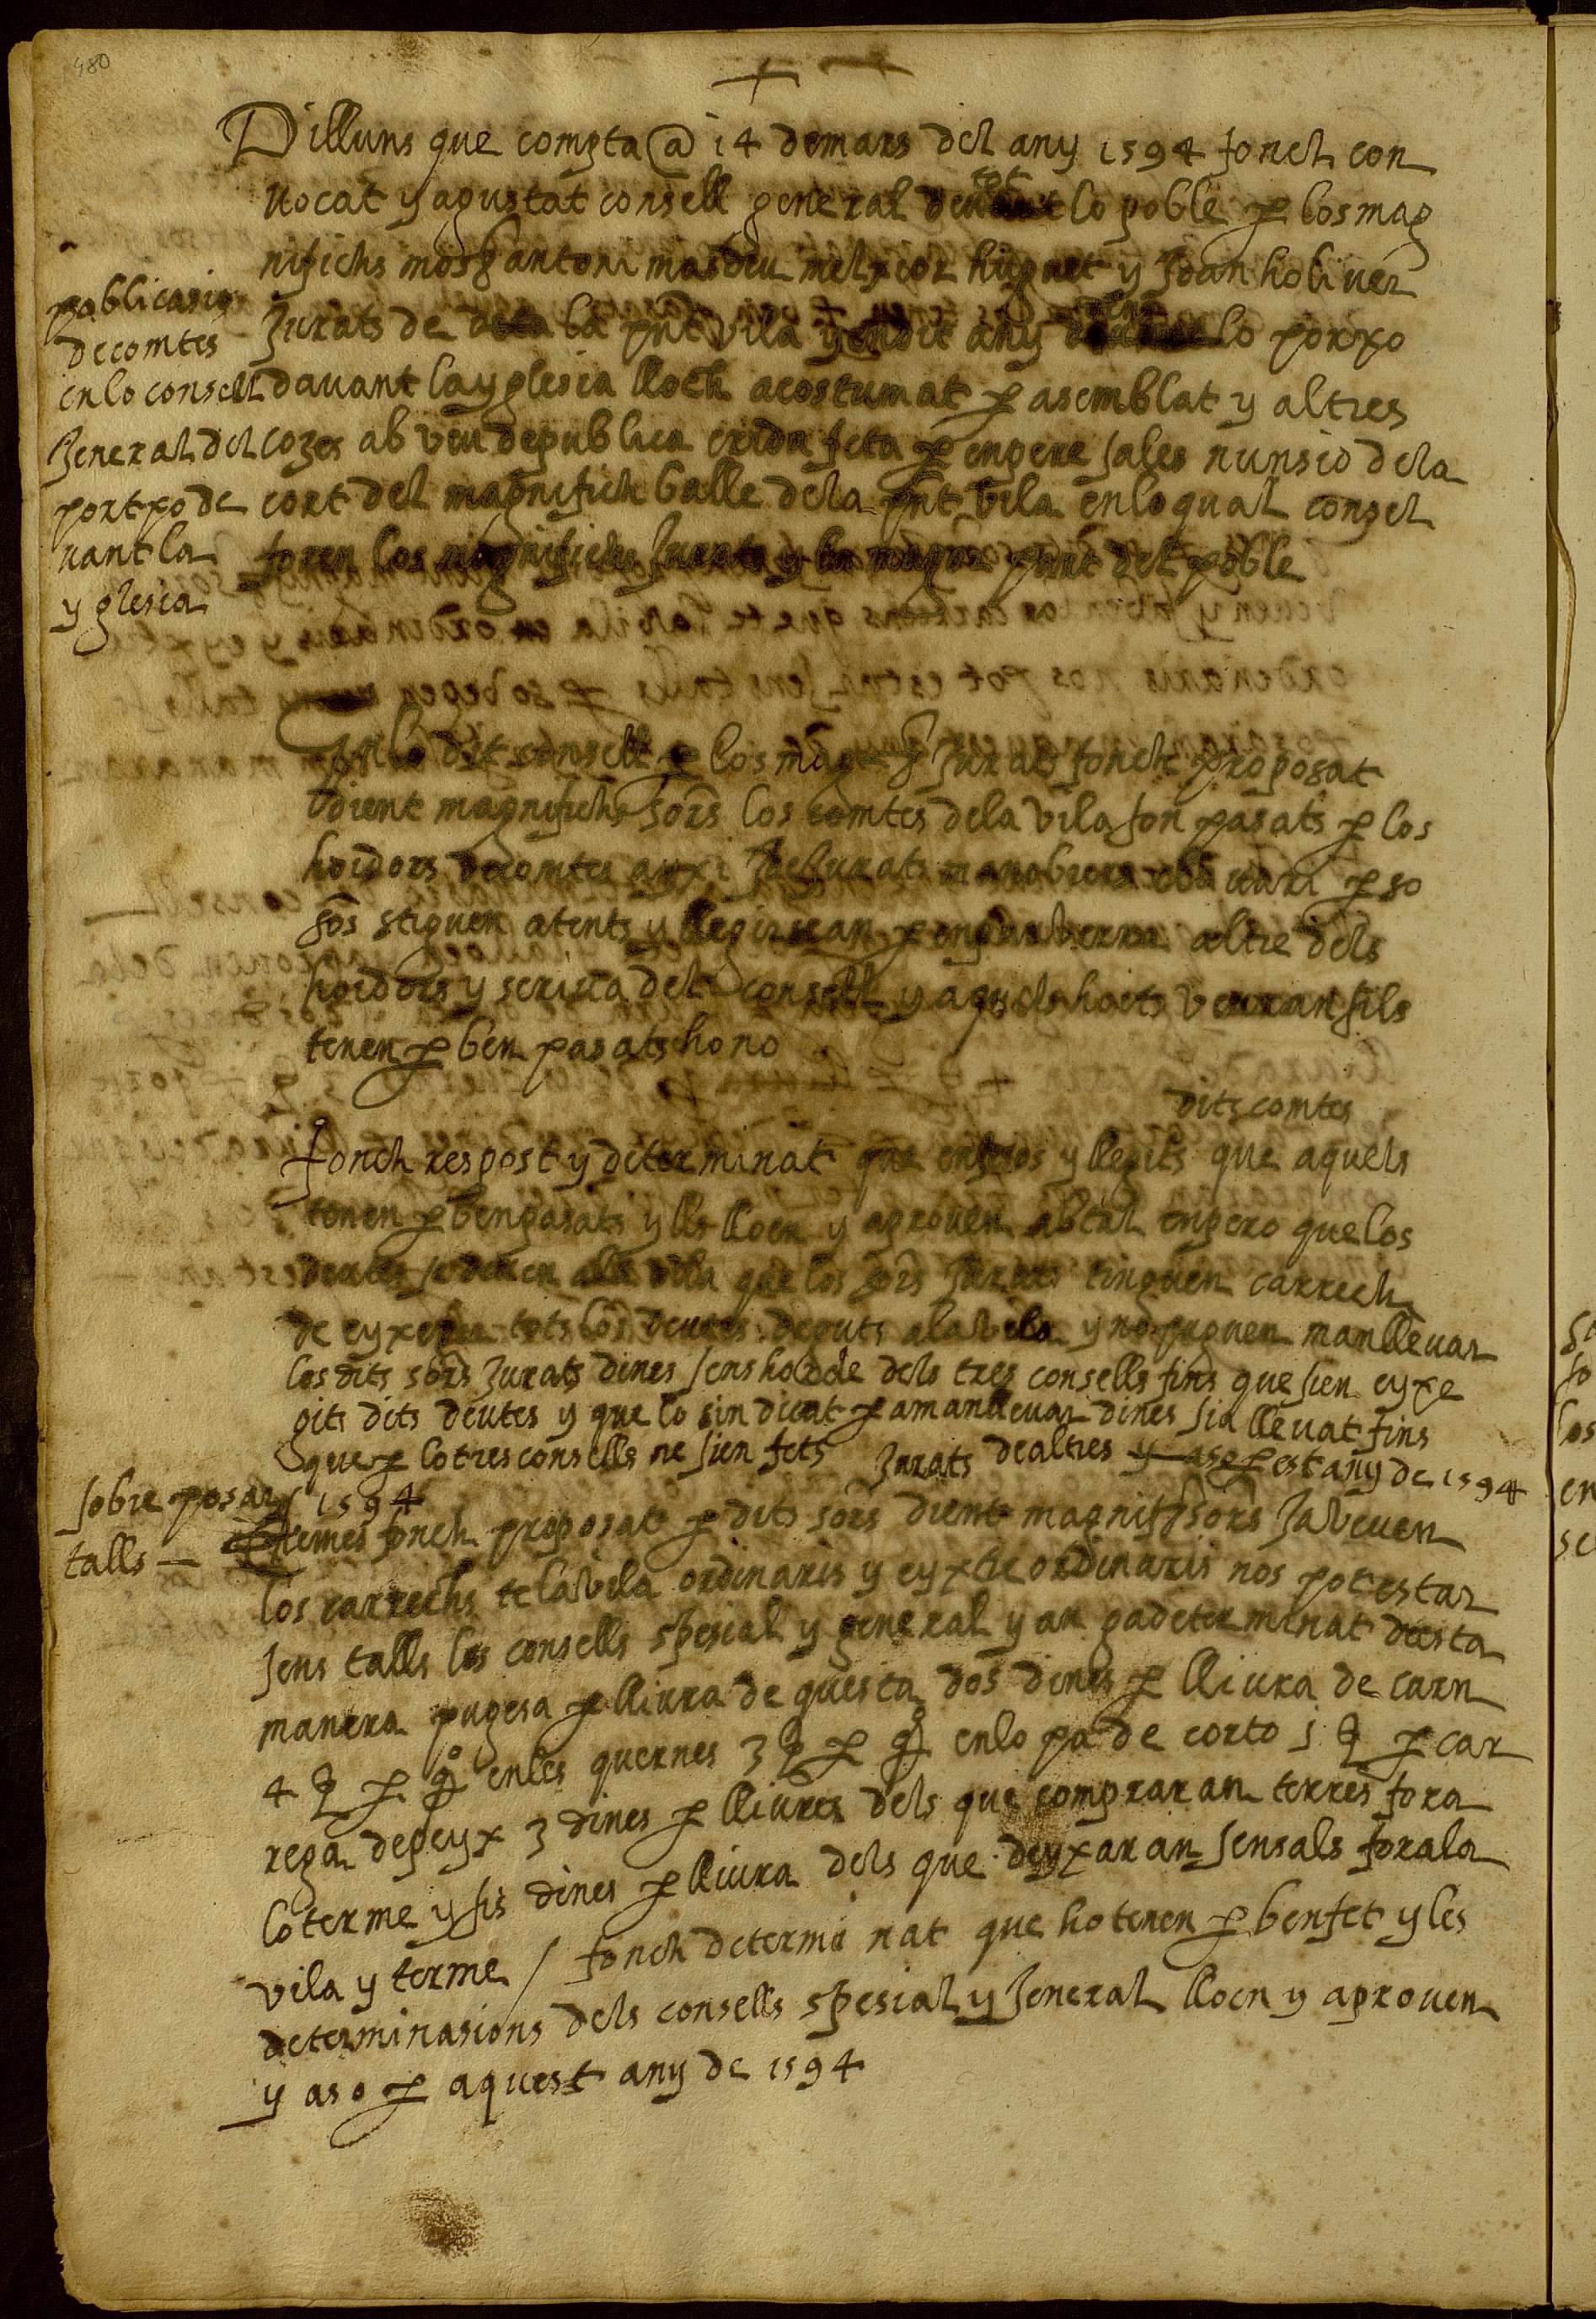 480
+
Dilluns que comptaṽ @ 14 de mars del any 1594 fonch con
uocat y agustat consell general de tot lo poble per los mag
nifichs mossen antoni masdeu melxior huguet y Joan holiuer
Jurats de la pnt vila y en dit any lo porxo
dauant la yglesia lloch acostumat per asemblat y altres
cozes ab veu de publica crida feta per en pere sales nunsio dela
cort del magnifich balle dela pnt vila en lo qual consel
foren los magnifichs Jurats y la major part del poble
publicasio
de comtes
en lo consell
Jeneral del
portxo de
uant la
yglesia
En lo dit consell per los magchs Jurats fonch proposat
dient magnifichs sors los comtes dela vila son pasats per los
hoidors de comtes axi de Jurats manobrers clauari per so
sos stiguen atents y llegirsean per en altre dels
hoidors y scriua del consell y aquels hoits veuran sils
tenen per ben pasats ho no
dits comtes
fonch respost y determinat que ensesos y llegits que aquels
tenen per ben pasats y lls lloen y aprouen ab tal empero que los
deutes se deuen ala vila que los sors Jurats tinguen carrech
de eyxegir tots los deutes deguts ala vila y no puguen manlleuar
los dits sors Jurats dines sens horde dels tres consells fins que sien eyxe
gits dits deutes y que lo sindicat per a manlleuar dines sia lleuat fins
que per lo tres consells ne sien fets Jurats de altres y aso per est any de 1594
1594
sobre posar
talls —
Et mes fonch proposat per dits sors dient magnifchs sors Ja veuen
los carrechs te la vila ordinaris y eyxtreordinaris nos pot estar
sens talls los consells spesial y general y an ga determinat desta
manera pugesa per lliura de questa dos dines per lliura de carn
4 ₰ per qo enles quernes 3 ₰ per qo en lo pa de corto 1 ₰ per car
rega de peyx 3 dines per lliures dels que compraran terres fora
lo terme y sis dines per lliura dels que deyxaran sensals fora la
vila y terme / fonch determinat que ho tenen per ben fet y les
determinasions dels consells spesial y Jeneral lloen y aprouen
y aso per aquest any de 1594